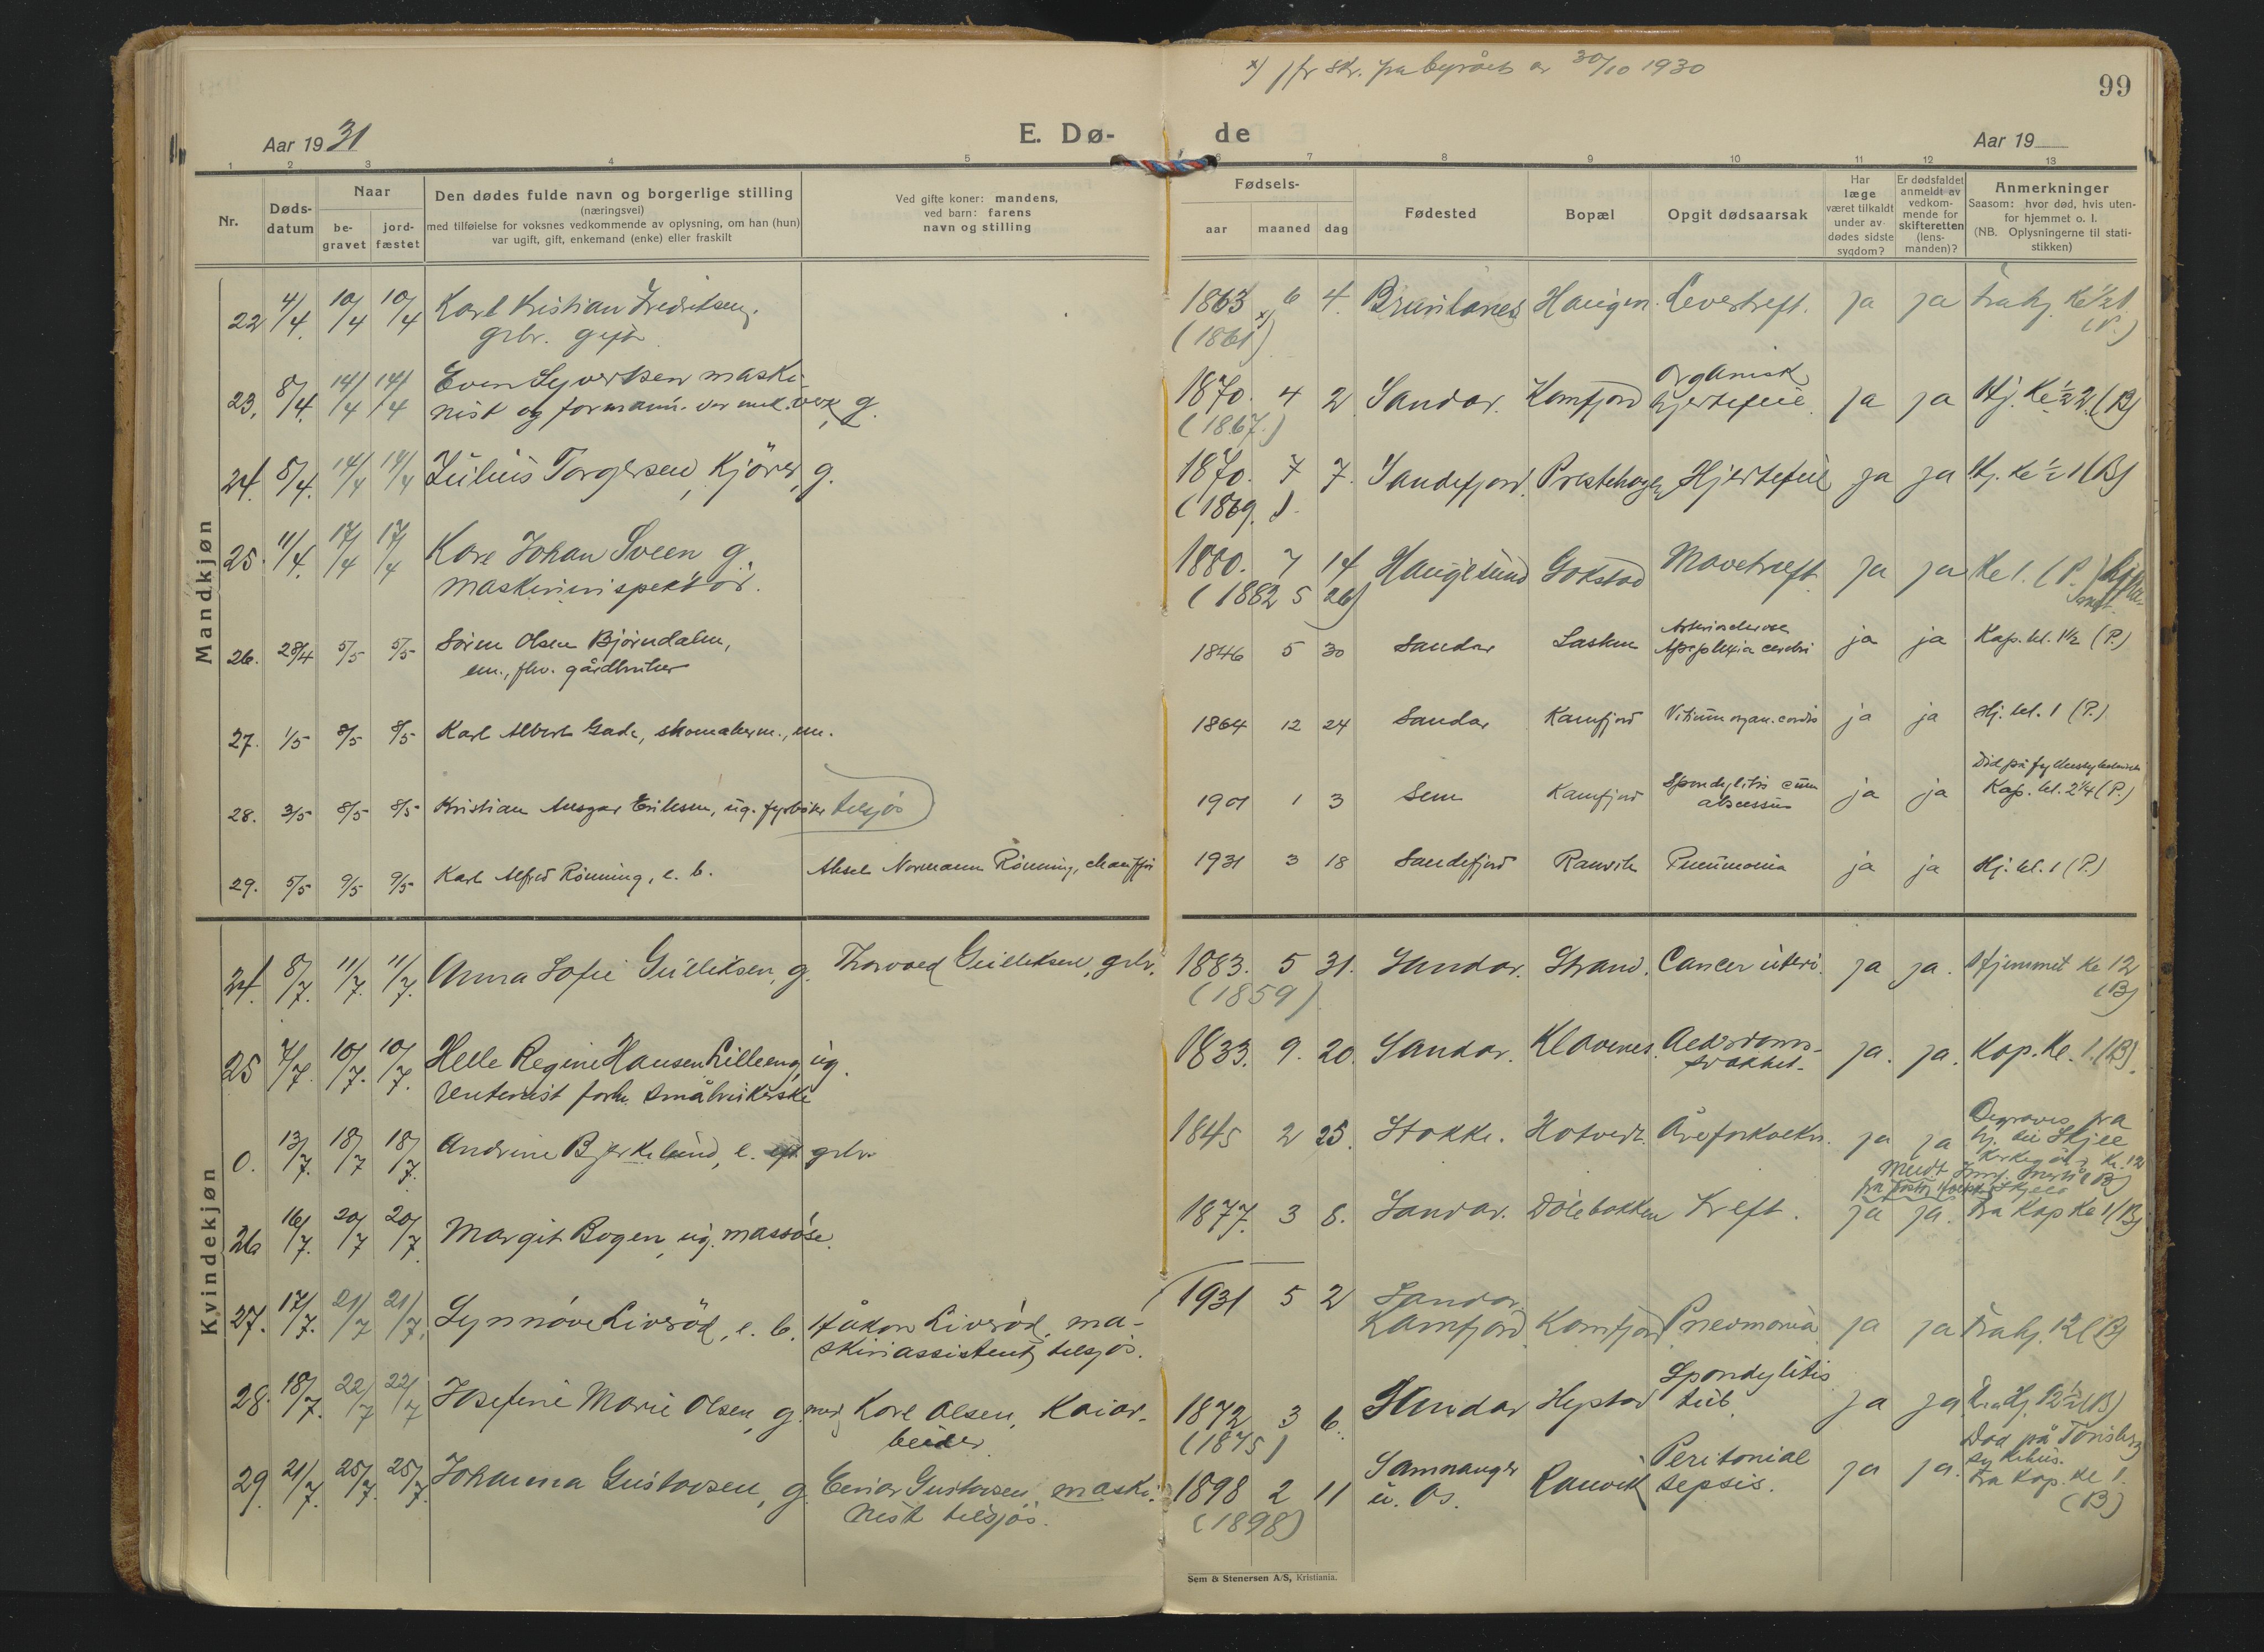 x) jfr skr. fra byrået av 30/10 1930
99
Aar 1931
E. Dø-
de
Aar 19
1 2 3 4 5 6 7 8 9 10 11 12 13
Nr.
Døds-
datum
Naar
be-
gravet
jord-
fæstet
Den dødes fulde navn og borgerlige stilling
(næringsvei)
med tilføielse for voksnes vedkommende av oplysning, om han (hun)
var ugift, gift, enkemand (enke) eller fraskilt
Ved gifte koner: mandens,
ved barn: farens
navn og stilling
Fødsels-
aar maaned dag
Fødested
Bopæl
Opgit dødsaarsak
Har
læge
været tilkaldt
under av-
dødes sidste
sygdom?
Er dødsfaldet
anmeldt av
vedkom-
mende for
skifteretten
(lens-
manden)?
Anmerkninger
Saasom: hvor død, hvis uten-
for hjemmet o. l.
(NB. Oplysningerne til stati-
stikken)
Mandkjøn
22 4/4. 10/4 10/4 Karl Kristian Fredriksen, 1863 x) 6 4. Brunlanes Haugen. Leverkreft. ja ja Fra hj. Kl ½ 1.
grbr. gift (1861) (P.)
23. 8/4. 14/4 14/4 Even Syvertsen maski- 1870. 4 2 Sandar. Kamfjord organisk ja ja Hj. Kl ½ 2. (B)
nist og formann. ver mek. verk, g. (1867.) hjertefeil.
24. 8/4. 14/4 14/4 Julius Torgersen, Kjörer, g. 1870. 7 7. Sandefjord. Prestehagen Hjertefeil ja ja Hj. Kl ½ 1 (B)
(1869.)
25. 11/4. 17/4 17/4 Kare Johan Sveen g. 1880. 7 14 Haugesund Gokstad Mavekreft ja ja Kl 1. (P.)
maskininspektör. (1882 5 26)
26. 28/4 5/5 5/5 Sören Olsen Bjørndalen, 1846 5 30 Sandar Lasken Arteriosclerose ja ja Kap. kl. 1½ (P.)
em., fhv. gårdbruker Apoplexia cerebri
27. 1/5 8/5 8/5 Karl Albert Gade, skomakerm., em. 1864 12 24 Sandar Kamfjord Vitium organ. cordis ja ja Hj. kl. 1 (P.)
28. 3/5 8/5 8/5 Kristian Ansgar Eriksen, ug. fyrbøter tilsjøs 1901 1 3 Sem Kamfjord Spondylitis cum ja ja Kap. kl. 2¼ (P.)
abscessus
29. 5/5 9/5 9/5 Karl Alfred Rönning, e. b. Aksel Normann Rönning, chauffør 1931 3 18 Sandefjord Ranvik Pneumonia ja ja Hj. kl. 1 (P.)
Kvindekjøn
24. 8/7. 11/7. 11/7. Anna Sofie Gulliksen, g. Thorvald Gulliksen, grbr. 1883. 5 31. Sandar. Strand. Cancer uteri. ja ja. Hjemmet Kl 12
(1859) (B)
25 7/7. 10/7. 10/7. Helle Regine Hansen Lilleeng, ug. 1833. 9. 20. Sandar. Klavenes. Alderdoms- ja. ja. Kap. Kl. 1. (B).
Rentenist forh. småbrukerske svakhet.
0. 13/7. 18/7 18/7. Andrine Bjerkelund, e. eft grbr. 1845 2 25. Stokke. Hotvedt. Åreforkalkn. ja ja Begraves fra
hj. til Skjee
Kirkegård Kl. 12
26 16/7. 20/7 20/7. Margit Bogen, ug. massöse. 1877. 3 8. Sandar. Dölebakken Kreft. ja ja. Fra Kap Kl 1 (B)
27. 17/7. 21/7 21/7. Synnöve Liveröd, e. b. Håkon Liveröd, ma- 1931 5 2 Sandar. Kamfjord Pneumonia ja ja Fra hj. 12 (B)
skinassistent, tilsjös. Kamfjord
28. 18/7. 22/7 22/7 Josefine Marie Olsen, g. med Karl Olsen, Kaiar- 1872 3 6. Sandar Hystad Spondylitis ja ja. Fra Hj. 12½ (B)
beider. (1875) tub.
29. 21/7. 25/7. 25/7. Johanna Gustavsen, g. Einar Gustavsen, maski- 1898 2 11 Samnanger Ranvik Peritonial ja ja. Död på Tönsberg
nist tilsjös. (1898) u. Os. sepsis. sykehus.
Fra Kap. Kl 1.
(B)
Sem & Stenersen A/S, Kristiania.